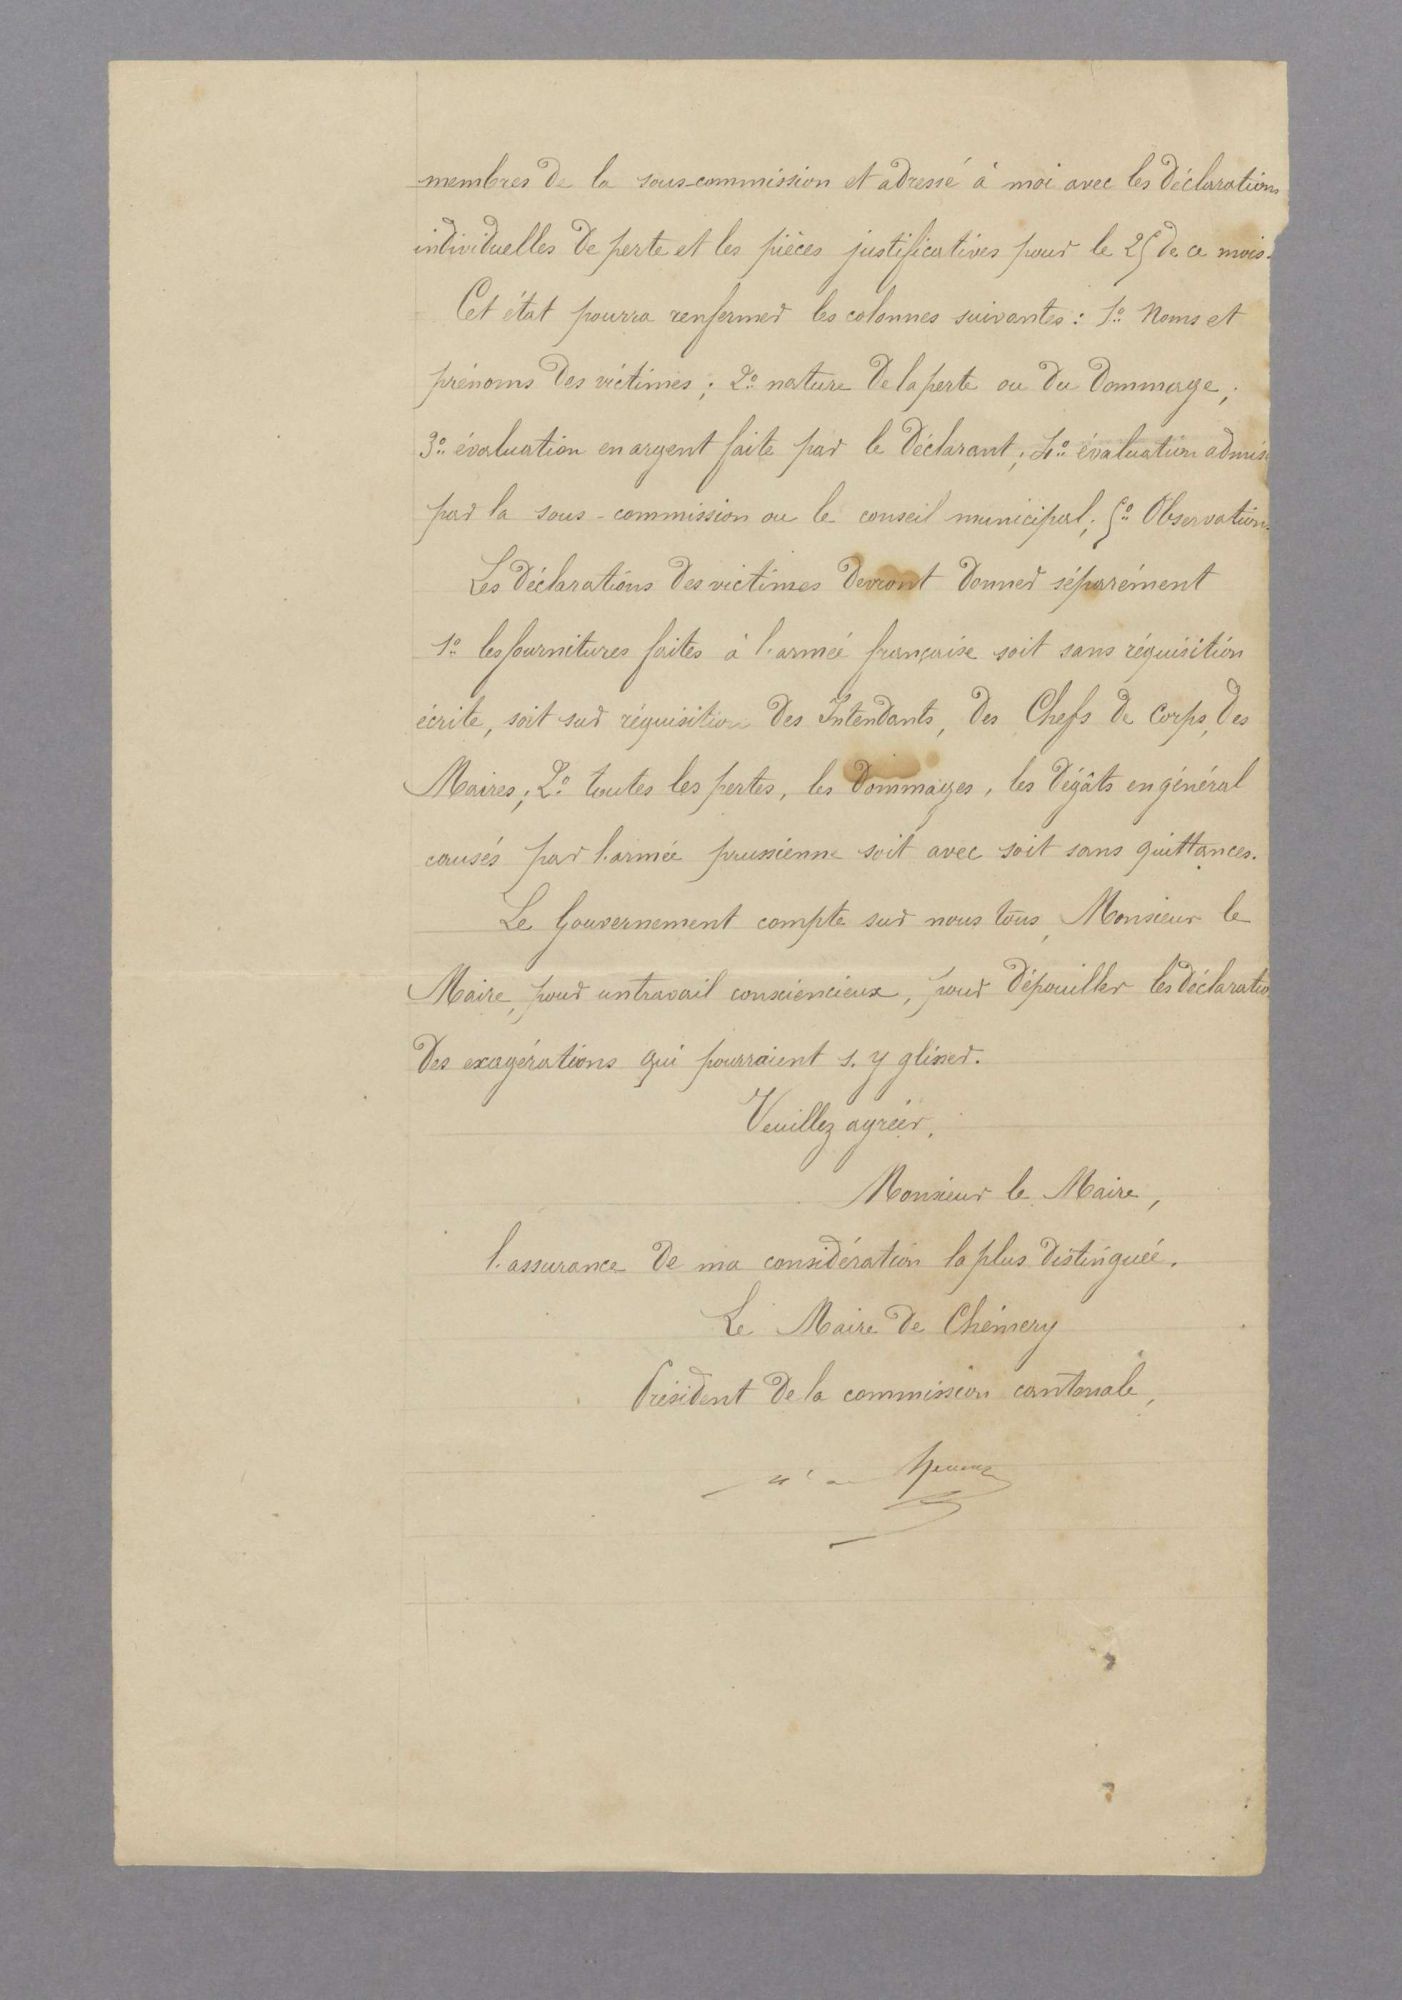 membres de la sous-commission et adressé à moi avec les déclarations
individuelles de perte et les pièces justificatives pour le 25 de ce mois.
Cet état pourra renfermer les colonnes suivantes : 1º Noms et
prénoms des victimes ; 2º nature de la perte ou du dommage ;
3º évaluation en argent faite par le déclarant ; 4º évaluation admis
par la sous-commission ou le conseil municipal ; 5º Observations
Les déclarations des victimes devront donner séparément
1º les fournitures faites à l'armée française soit sans réquisition
écrite, soit sur réquisition des Intendants, des Chefs de Corps, des
Maires ; 2º toutes les pertes, les dommages, les dégâts en général
causés par l'armée prussienne soit avec soit sans quittances.
Le Gouvernement compte sur nous tous, Monsieur le
Maire, pour un travail consciencieux, pour dépouiller les déclaratio
des exagérations qui pourraient s'y glisser.
Veuillez agréer,
Monsieur le Maire,
l'assurance de ma considération la plus distinguée.
Le Maire de Chémery
Président de la commission cantonale,